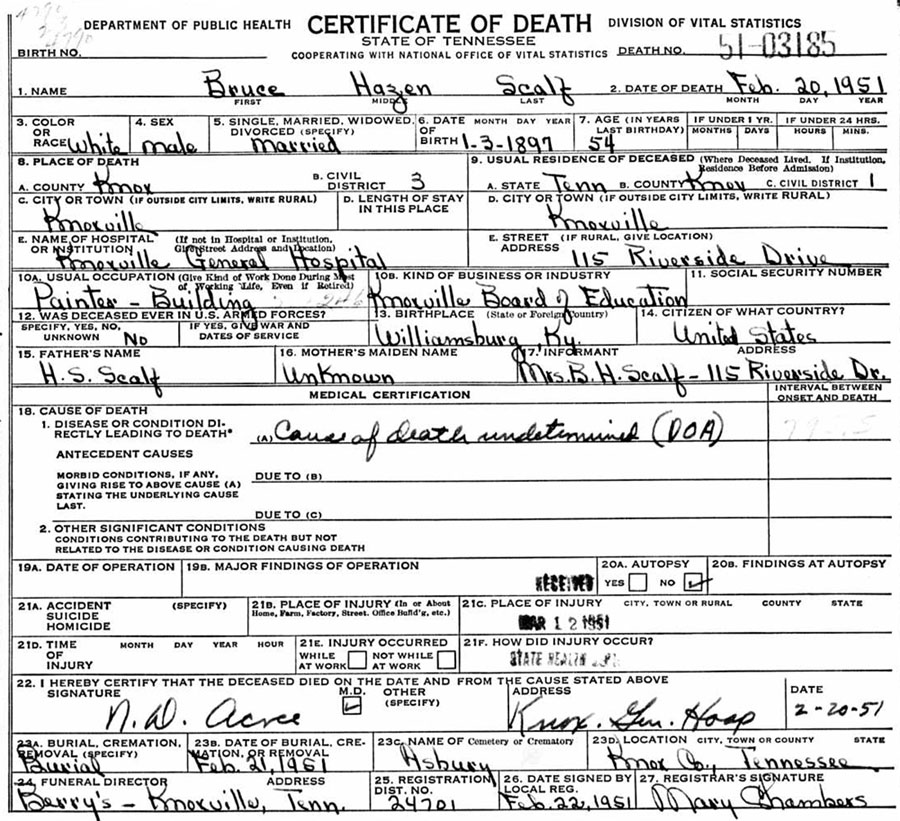 DEPARTMENT OF PUBLIC HEALTH CERTIFICATE OF DEATH DIVISION OF VITAL STATISTICS
STATE OF TENNESSEE
BIRTH NO. COOPERATING WITH NATIONAL OFFICE OF VITAL STATISTICS DEATH NO. 51-03185
1. NAME Bruce Hazen Scalf 2. DATE OF DEATH Feb. 20, 1951
FIRST MIDDLE LAST MONTH DAY YEAR
3. COLOR OR RACE White 4. SEX Male 5. SINGLE, MARRIED, WIDOWED, DIVORCED (SPECIFY) Married 6. DATE OF BIRTH MONTH DAY YEAR 1-3-1897 7. AGE (IN YEARS LAST BIRTHDAY) 54 IF UNDER 1 YR. MONTHS DAYS IF UNDER 24 HRS. HOURS MINS.
8. PLACE OF DEATH 9. USUAL RESIDENCE OF DECEASED (Where Deceased Lived. If Institution, Residence Before Admission)
A. COUNTY Knox B. CIVIL DISTRICT 3 A. STATE Tenn B. COUNTY Knox C. CIVIL DISTRICT 1
C. CITY OR TOWN (IF OUTSIDE CITY LIMITS, WRITE RURAL) D. LENGTH OF STAY IN THIS PLACE D. CITY OR TOWN (IF OUTSIDE CITY LIMITS, WRITE RURAL)
Knoxville Knoxville
E. NAME OF HOSPITAL OR INSTITUTION (If not in Hospital or Institution, Give Street Address and Location) E. STREET ADDRESS (IF RURAL, GIVE LOCATION)
Knoxville General Hospital 115 Riverside Drive
10A. USUAL OCCUPATION (Give Kind of Work Done During Most of Working Life, Even if Retired) 10B. KIND OF BUSINESS OR INDUSTRY 11. SOCIAL SECURITY NUMBER
Painter - Building Knoxville Board of Education
12. WAS DECEASED EVER IN U.S. ARMED FORCES? 13. BIRTHPLACE (State or Foreign Country) 14. CITIZEN OF WHAT COUNTRY?
SPECIFY, YES, NO, UNKNOWN No IF YES, GIVE WAR AND DATES OF SERVICE Williamsburg, Ky. United States
15. FATHER'S NAME 16. MOTHER'S MAIDEN NAME 17. INFORMANT ADDRESS
H. S. Scalf Unknown Mrs. B. H. Scalf - 115 Riverside Dr.
MEDICAL CERTIFICATION INTERVAL BETWEEN ONSET AND DEATH
18. CAUSE OF DEATH
1. DISEASE OR CONDITION DIRECTLY LEADING TO DEATH* (A) Cause of death undetermined (DOA)
ANTECEDENT CAUSES
MORBID CONDITIONS, IF ANY, GIVING RISE TO ABOVE CAUSE (A) STATING THE UNDERLYING CAUSE LAST. DUE TO (B)
DUE TO (C)
2. OTHER SIGNIFICANT CONDITIONS
CONDITIONS CONTRIBUTING TO THE DEATH BUT NOT
RELATED TO THE DISEASE OR CONDITION CAUSING DEATH
19A. DATE OF OPERATION 19B. MAJOR FINDINGS OF OPERATION 20A. AUTOPSY YES NO 20B. FINDINGS AT AUTOPSY
RECEIVED
21A. ACCIDENT SUICIDE HOMICIDE (SPECIFY) 21B. PLACE OF INJURY (In or About Home, Farm, Factory, Street, Office Build'g, etc.) 21C. PLACE OF INJURY CITY, TOWN OR RURAL COUNTY STATE
MAR 12 1951
21D. TIME OF INJURY MONTH DAY YEAR HOUR 21E. INJURY OCCURRED WHILE AT WORK NOT WHILE AT WORK 21F. HOW DID INJURY OCCUR?
STATE HEALTH
22. I HEREBY CERTIFY THAT THE DECEASED DIED ON THE DATE AND FROM THE CAUSE STATED ABOVE
SIGNATURE M.D. OTHER (SPECIFY) ADDRESS DATE
N. D. Acree Knox. Gen. Hosp 2-20-51
23A. BURIAL, CREMATION, REMOVAL (SPECIFY) 23B. DATE OF BURIAL, CREMATION, OR REMOVAL 23C. NAME OF Cemetery or Crematory 23D. LOCATION CITY, TOWN OR COUNTY STATE
Burial Feb. 21, 1951 Asbury Knox Co., Tennessee
24. FUNERAL DIRECTOR ADDRESS 25. REGISTRATION DIST. NO. 26. DATE SIGNED BY LOCAL REG. 27. REGISTRAR'S SIGNATURE
Berry's - Knoxville, Tenn. 24701 Feb. 22, 1951 Mary Chambers